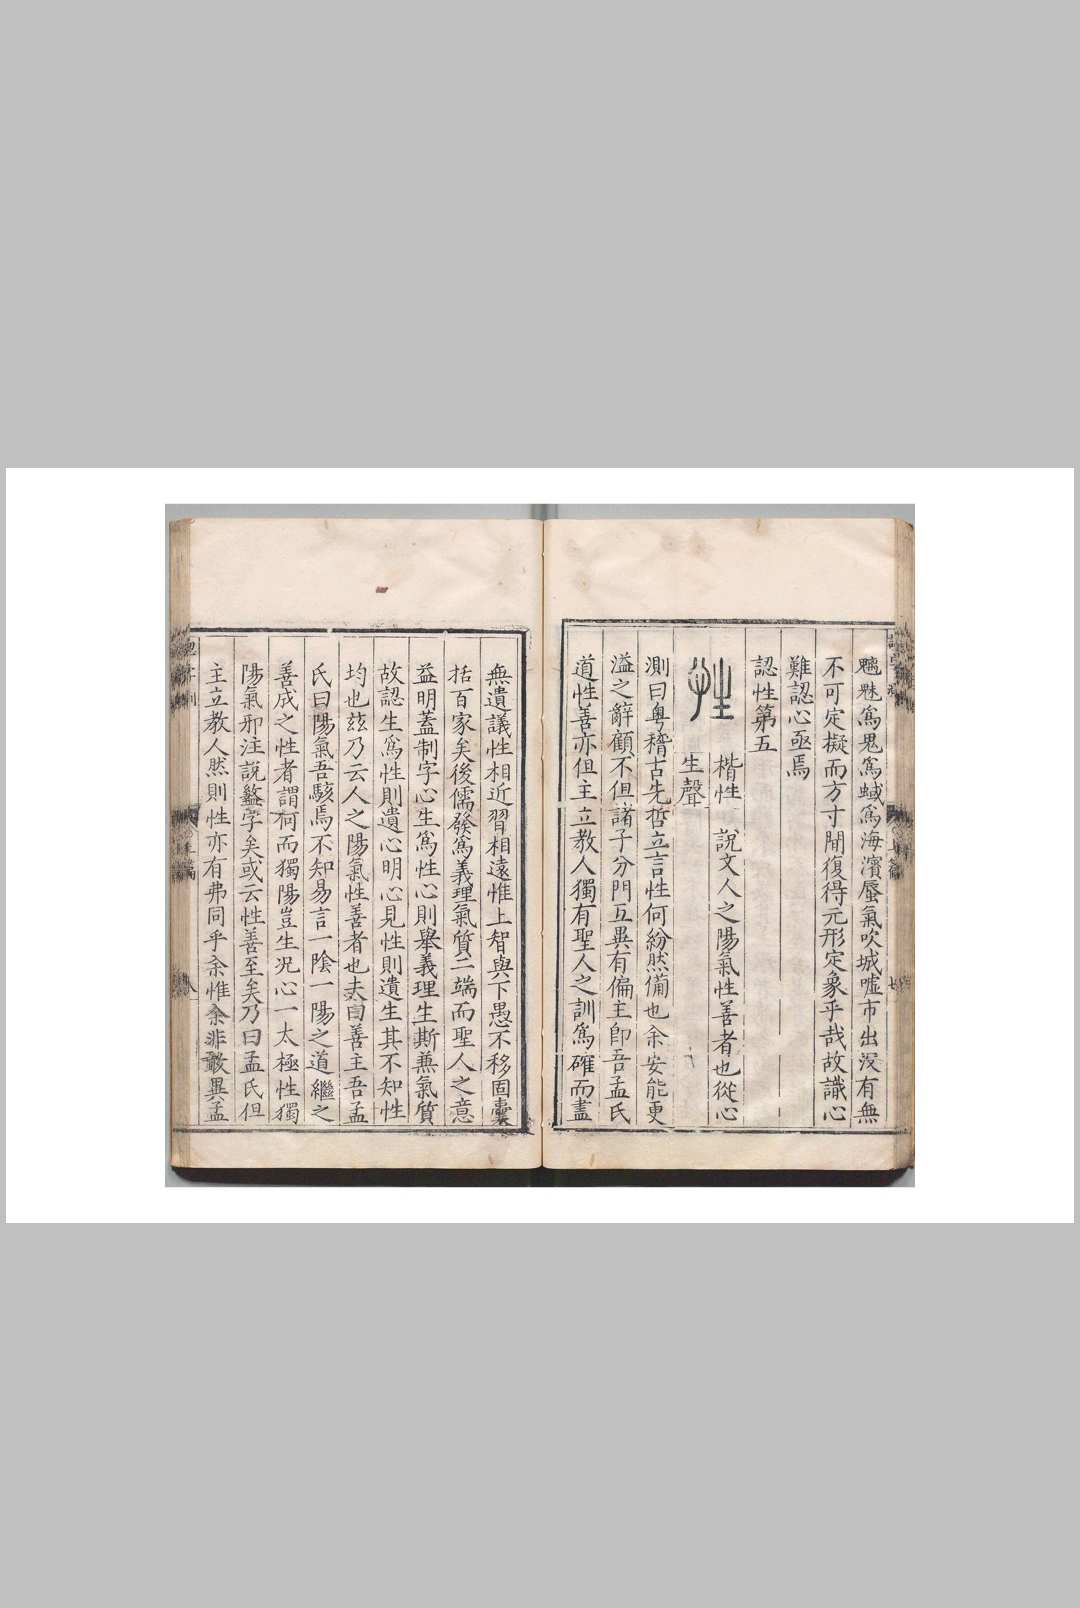 魑魅爲鬼爲蜮爲海濱蜃氣吹城噓市出沒有無
不可定擬而方寸間復得元形定象乎哉故識心
難認心亟焉
認性第五
性 楷性 說文人之陽氣性善者也從心
生聲
測曰粵稽古先哲立言性何紛然備也余安能更
溢之辭顧不但諸子分門互異有偏主卽吾孟氏
道性善亦但主立敎人獨有聖人之訓爲確而盡
無遺議性相近習相遠惟上智與下愚不移固囊
括百家矣後儒發爲義理氣質二端而聖人之意
益明蓋制字心生爲性心則舉義理生斯兼氣質
故認生爲性則遺心明心見性則遺生其不知性
均也玆乃云人之陽氣性善者也夫曰善主吾孟
氏曰陽氣吾駭焉不知易言一陰一陽之道繼之
善成之性者謂何而獨陽豈生況心一太極性獨
陽氣邪注說盭字矣或云性善至矣乃曰孟氏但
主立敎人然則性亦有弗同乎余惟余非敢異孟